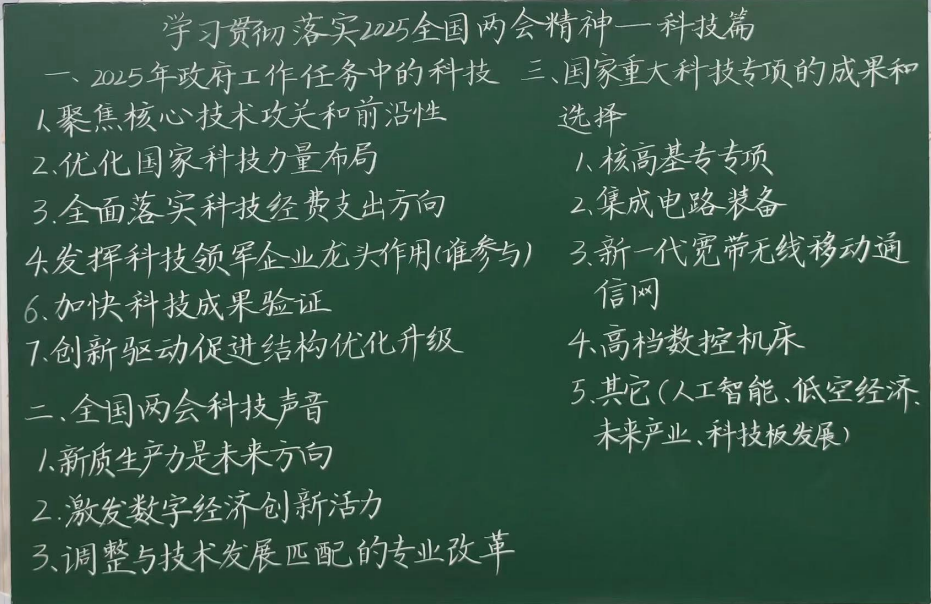 学习贯彻落实2025全国两会精神—科技篇
一、2025年政府工作任务中的科技
1.聚焦核心技术攻关和前沿性
2.优化国家科技力量布局
3.全面落实科技经费支出方向
4.发挥科技领军企业龙头作用(谁参与)
6.加快科技成果验证
7.创新驱动促进结构优化升级
二、全国两会科技声音
1.新质生产力是未来方向
2.激发数字经济创新活力
3.调整与技术发展匹配的专业改革
三、国家重大科技专项的成果和
选择
1.核高基专专项
2.集成电路装备
3.新一代宽带无线移动通
信网
4.高档数控机床
5.其它(人工智能、低空经济、
未来产业、科技板发展)